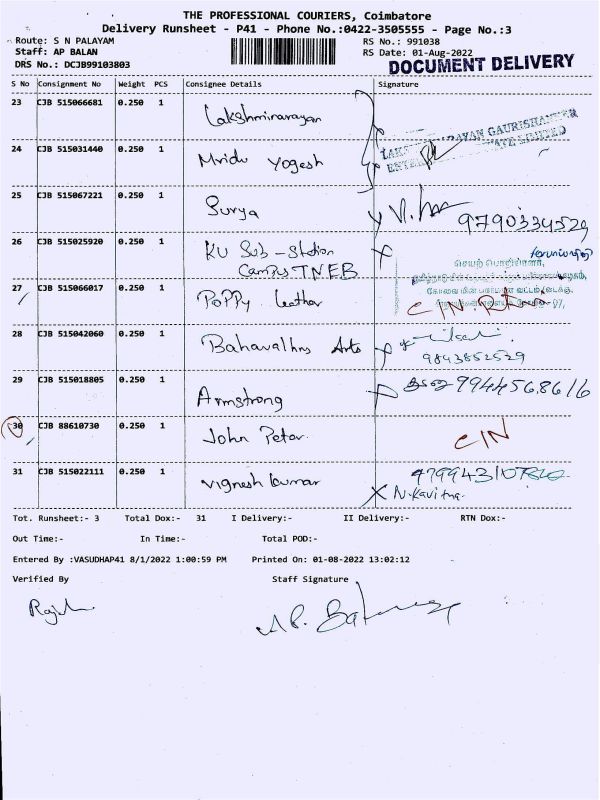 THE PROFESSIONAL COURIERS, Coimbatore
Delivery Runsheet - P41 - Phone No.:0422-3505555 - Page No.:3
Route: S N PALAYAM
RS No.: 991038
Staff: AP BALAN
RS Date: 01-Aug-2022
DRS No.: DCJB99103803
DOCUMENT DELIVERY
S No Consignment No Weight PCS Consignee Details Signature
23 CJB 515066681 0.250 1 Lakshminarayan
24 CJB 515031440 0.250 1 Mridu Yogesh
25 CJB 515067221 0.250 1 Surya 9790334529
26 CJB 515025920 0.250 1 KU Sub-Station
Campus TNEB
27 CJB 515066017 0.250 1 Poppy leather CIN
28 CJB 515042060 0.250 1 Arts
9843852529
29 CJB 515018805 0.250 1 Armstrong
30 CJB 88610730 0.250 1 John Peter. CIN
31 CJB 515022111 0.250 1 Vignesh kumar
N.Kavitha.
Tot. Runsheet:- 3 Total Dox:- 31 I Delivery:- II Delivery:- RTN Dox:-
Out Time:- In Time:- Total POD:-
Entered By :VASUDHAP41 8/1/2022 1:00:59 PM Printed On: 01-08-2022 13:02:12
Verified By Staff Signature